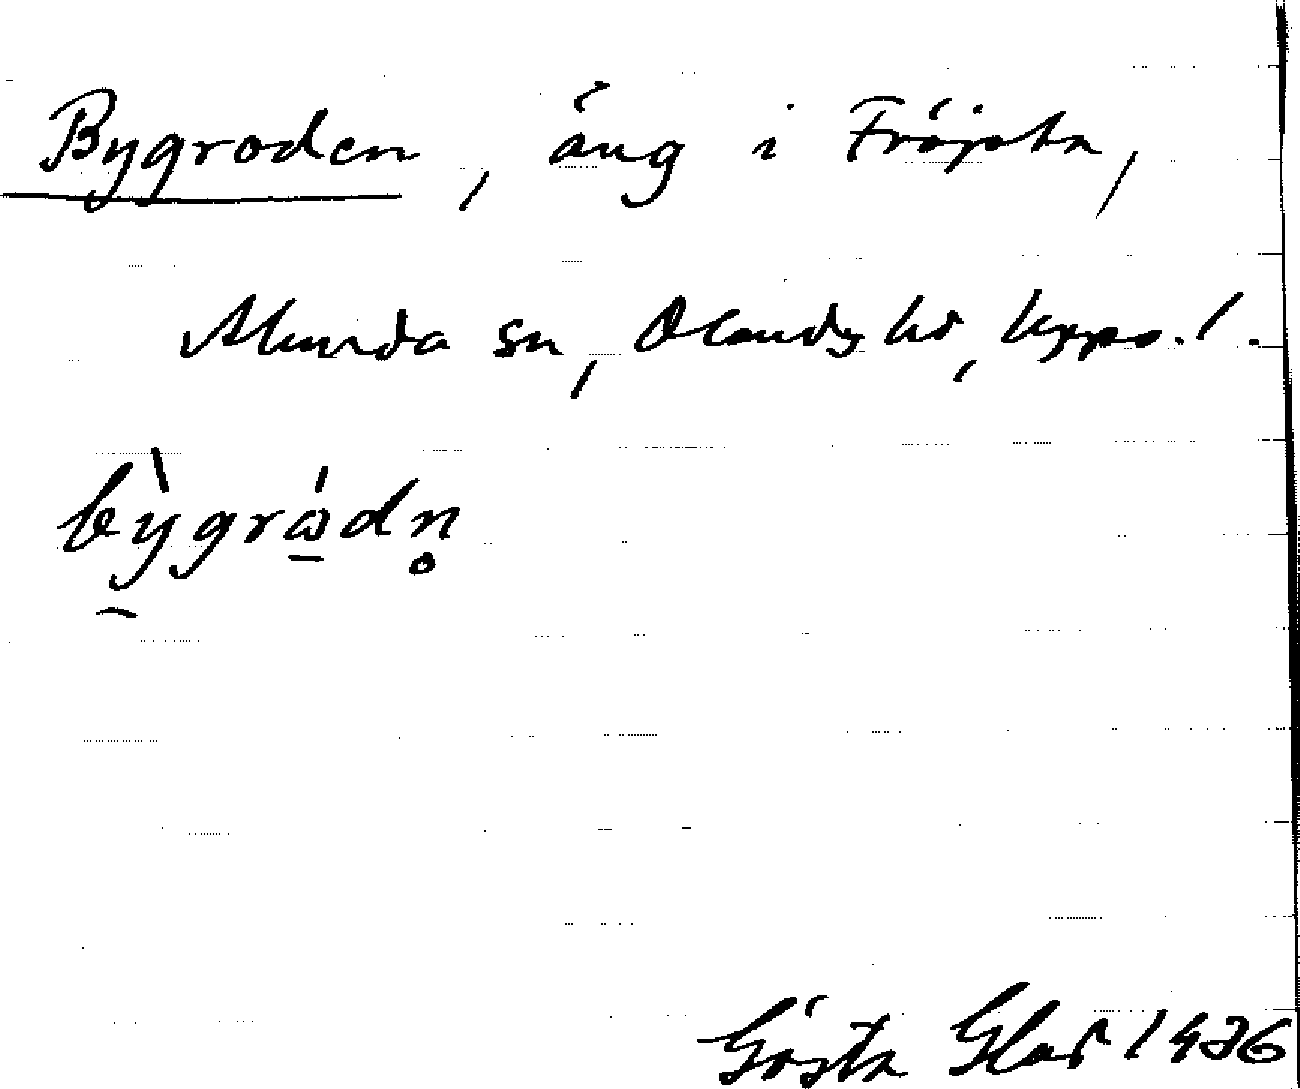 Bygroden, äng i Fröjsta,
Alunda sn, Olands hd, Upps. l.
bỳ̠grώ̠dn̥
Gösta Glas 1936